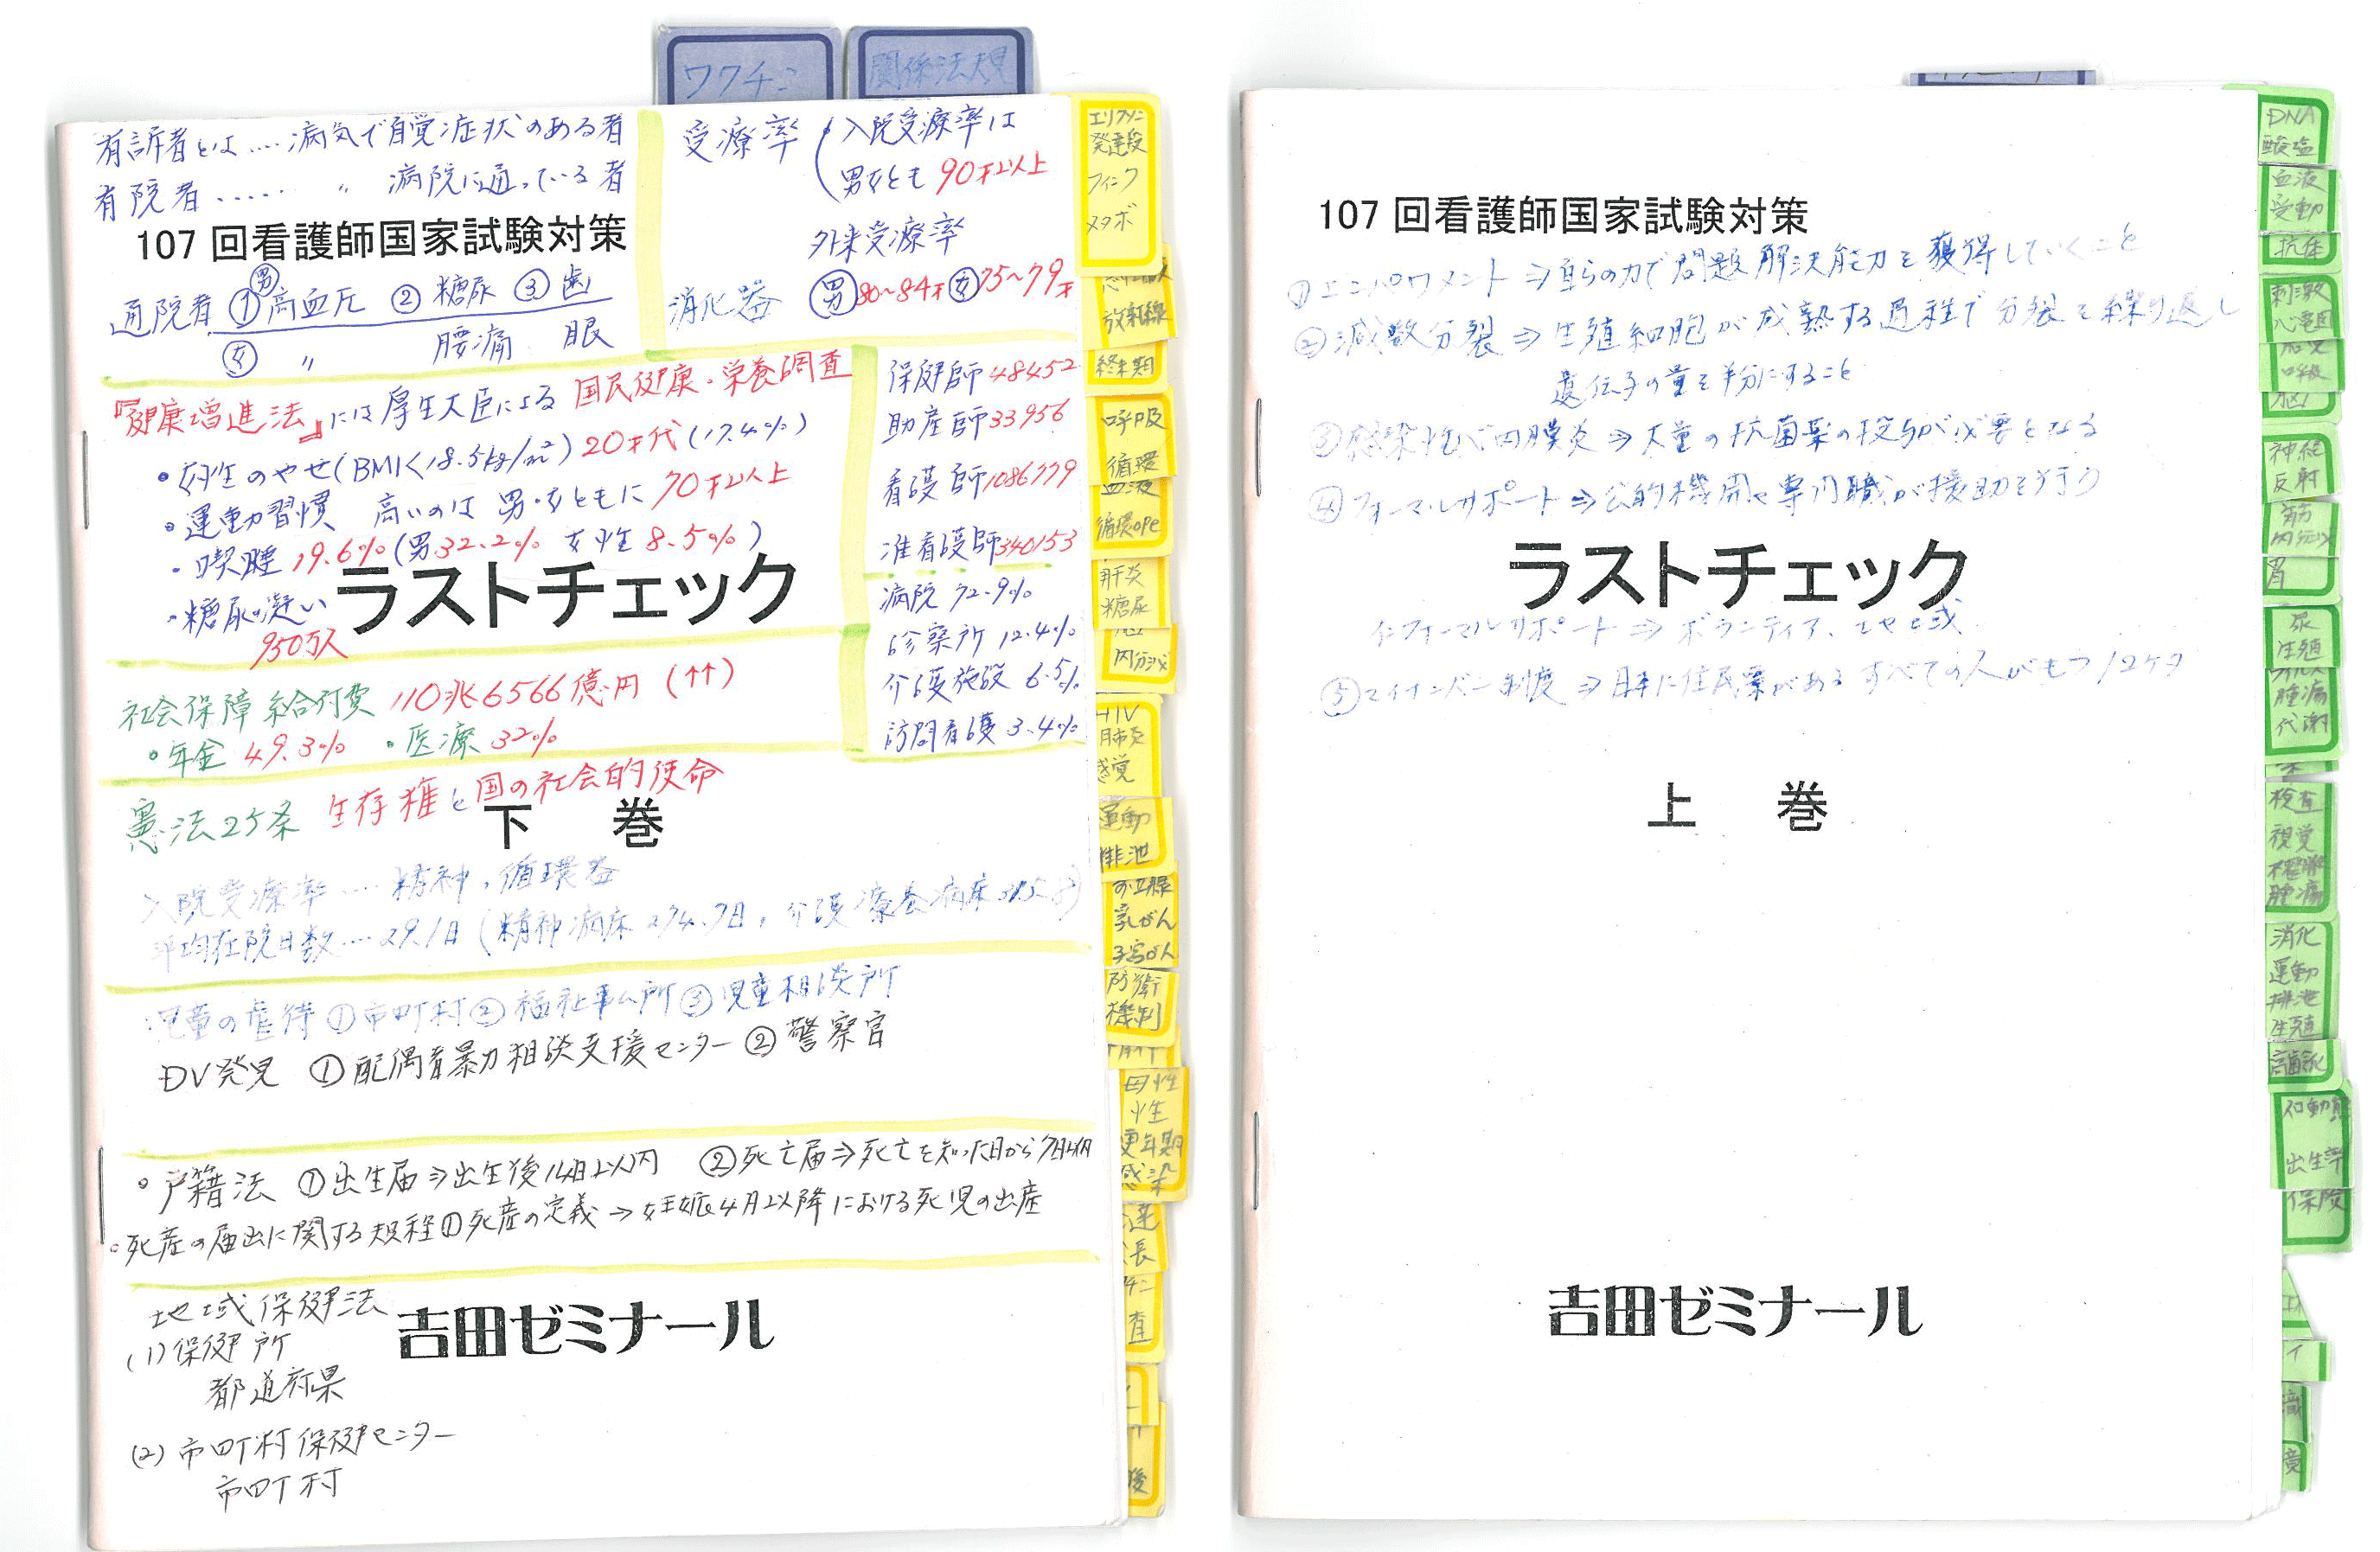 ワクチン
関係法規
有訴者とは‥‥病気で自覚症状のある者
有院者‥‥‥ 〃 病院に通っている者
107 回看護師国家試験対策
通院者 ①男 高血圧 ② 糖尿 ③ 歯
女 〃 腰痛 眼
受療率 入院受療率は
男女とも 90才以上
外来受療率
消化器 男80~84才 女75~79才
『健康増進法』には厚生大臣による 国民健康・栄養調査
・女性のやせ(BMI<18.5kg/㎡) 20才代(17.4%)
・運動習慣 高いのは 男・女ともに 70才以上
・喫煙 19.6%(男32.2% 女性 8.5%)
・糖尿の疑い
950万人
ラストチェック
保健師 48452
助産師 33956
看護師 1086779
准看護師 340153
病院 72.9%
診療所 12.4%
介護施設 6.5%
訪問看護 3.4%
社会保障給付費 110兆6566億円 (↑↑)
・年金 49.3% ・医療 32%
憲法25条 生存権と国の社会的使命
下 巻
入院受療率‥‥精神，循環器
平均在院日数‥‥29.1日(精神病床 274.7日，介護療養病床
児童の虐待 ①市町村 ② 福祉事ム所 ③ 児童相談所
DV発見 ① 配偶者暴力相談支援センター ② 警察官
・戸籍法 ①出生届⇒出生後14日以内 ②死亡届⇒死亡を知った日から7日以内
・死産の届出に関する規程①死産の定義→妊娠4月以降における死児の出産
地域保健法
(1)保健所
都道府県
(2)市町村保健センター
市町村
吉田ゼミナール
発達段
フィンク
メタボ
放射線
終末期
呼吸
循環
血液
循環ope
肝炎
糖尿
内分泌
HIV
肺炎
感覚
運動
排泄
乳がん
子宮がん
防衛
機制
母性
性
更年期
感染
107 回看護師国家試験対策
①エンパワメント⇒自らの力で問題解決能力を獲得していくこと
②減数分裂⇒生殖細胞が成熟する過程で分裂を繰り返し
遺伝子の量を半分にすること
③感染性心内膜炎⇒大量の抗菌薬の投与が必要となる
④フォーマルサポート⇒公的機関や専門職が援助を行う
ラストチェック
インフォーマルサポート⇒ボランティア、地域
⑤マイナンバー制度⇒日本に住民票があるすべての人がもつ12ケタ
上 巻
吉田ゼミナール
DNA
酸塩
血液
受動
抗体
刺激
心電図
呼吸
脳
神経
反射
筋
内分泌
胃
尿
生殖
腫瘍
代謝
検査
視覚
腫瘍
消化
運動
排泄
生殖
高齢
出生率
保険